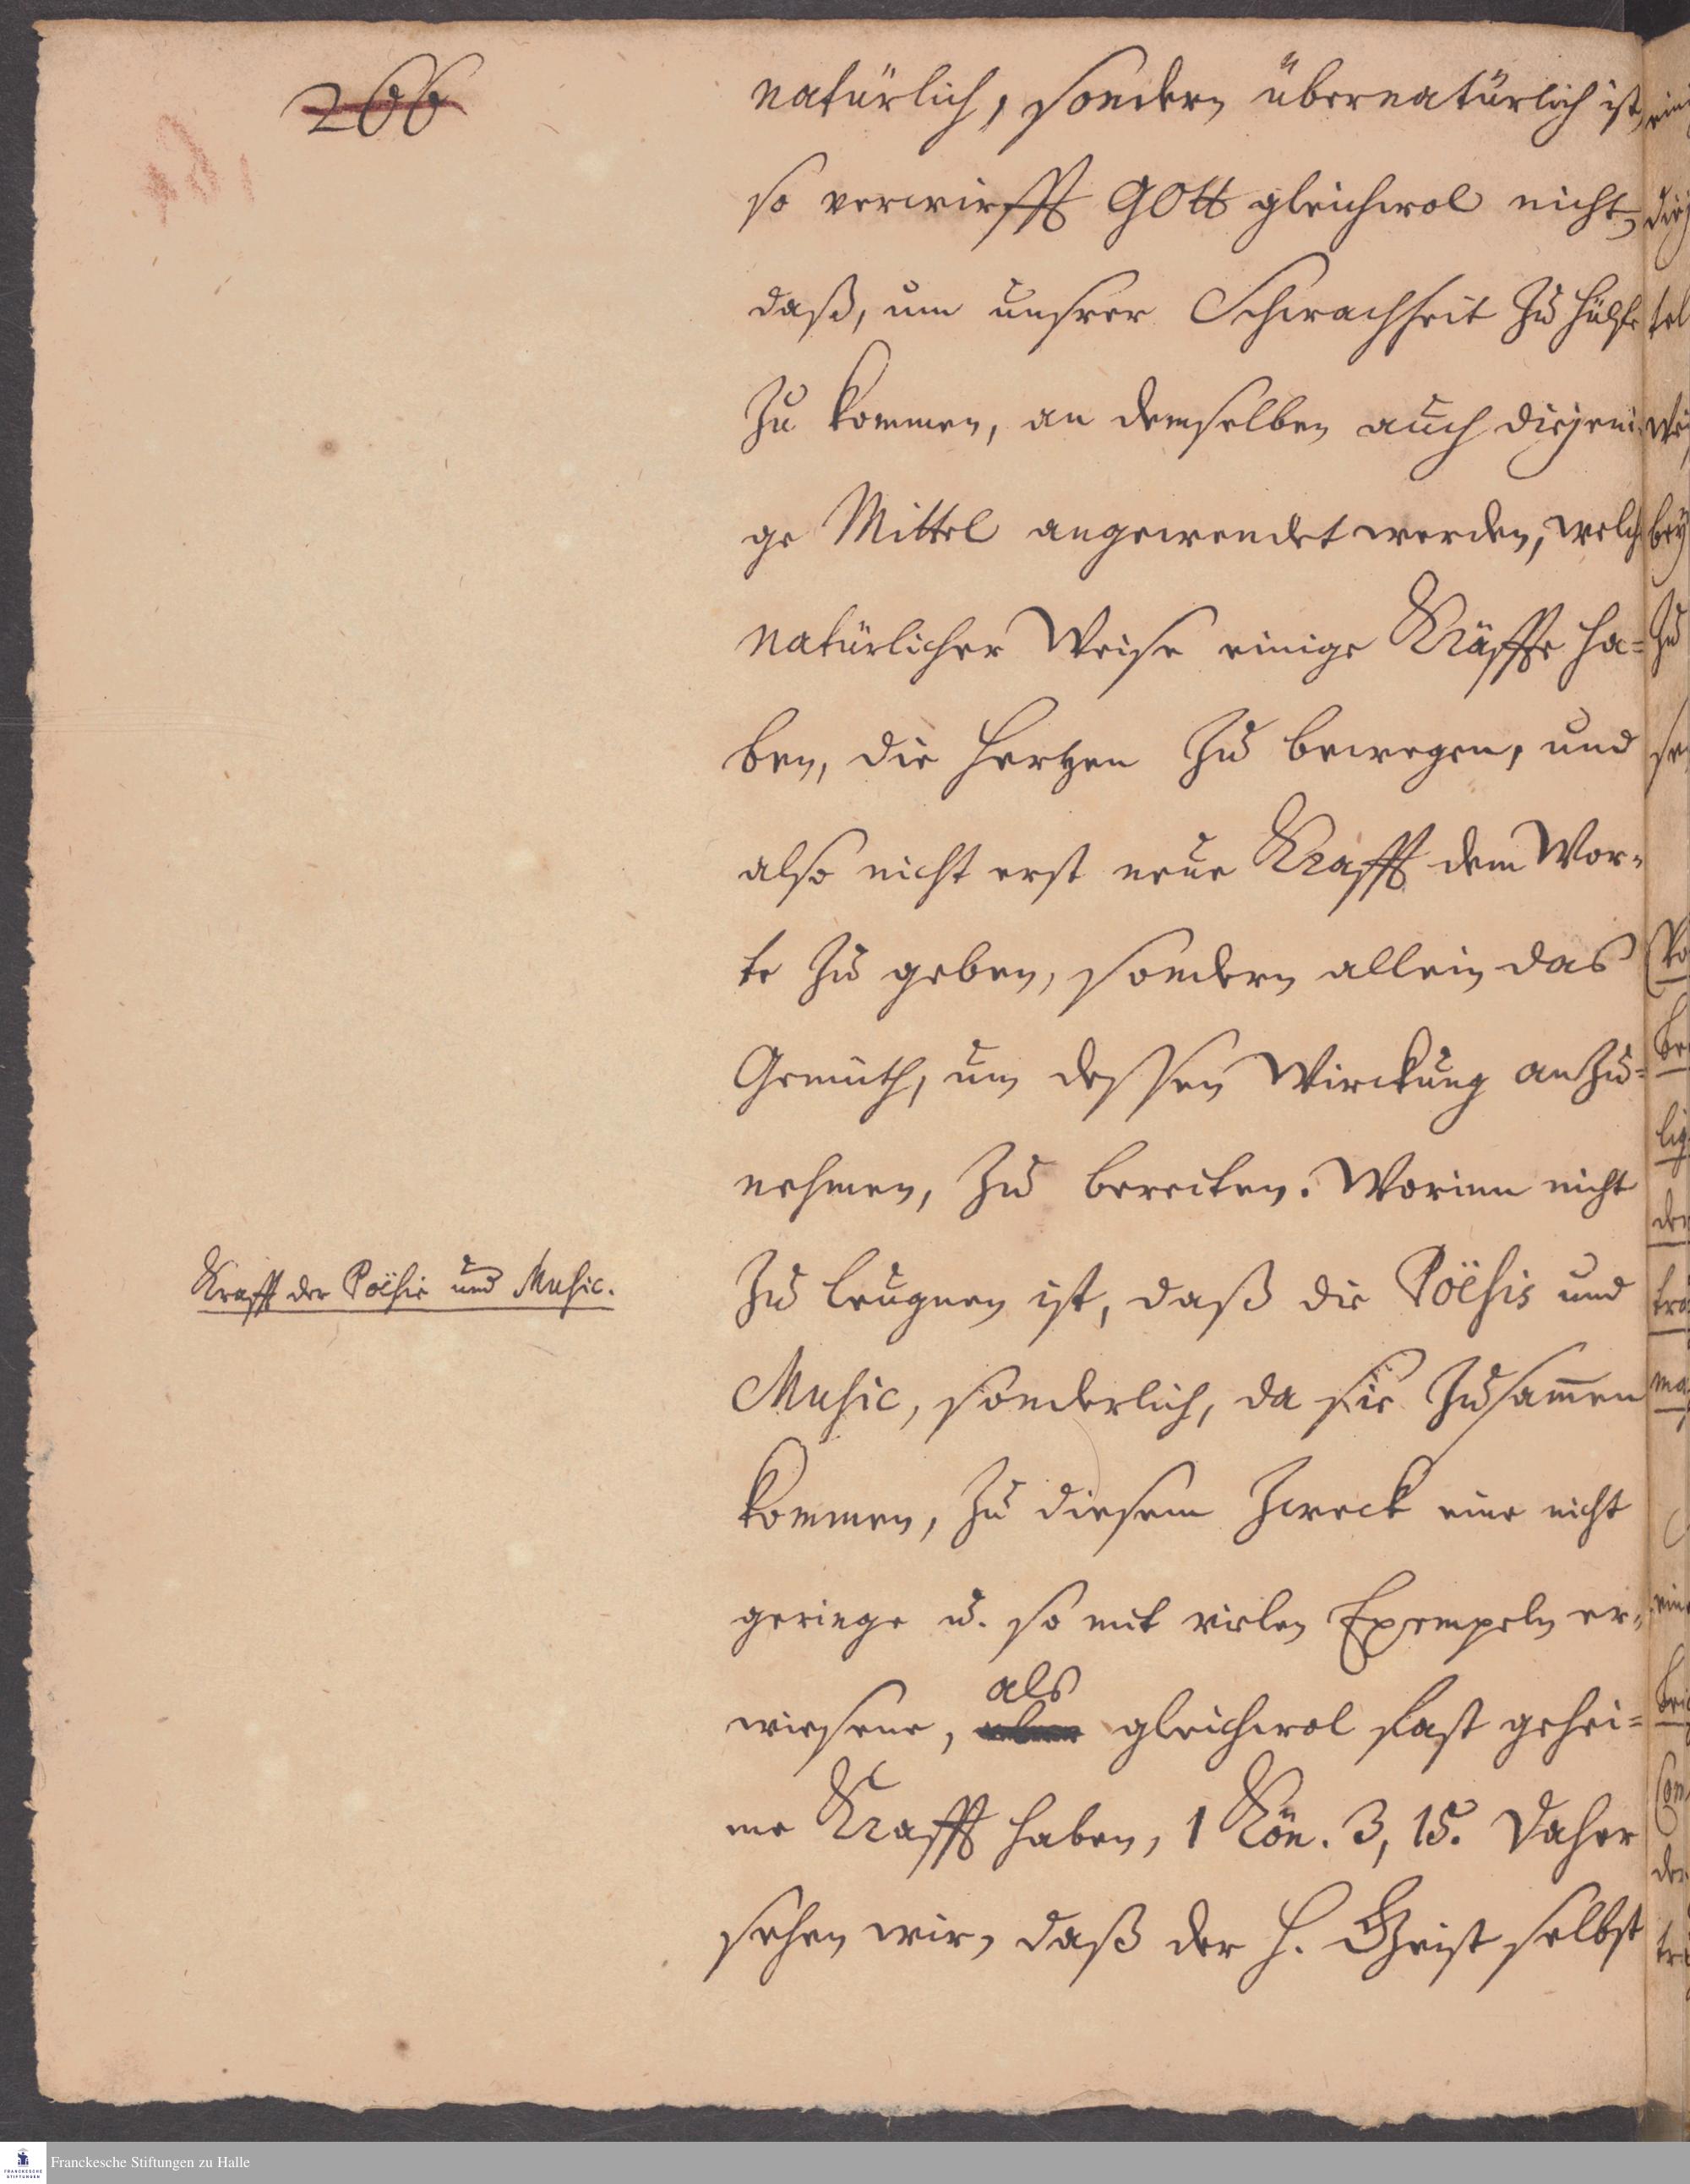 266
natürlich, sondern übernatürlich ist,
so verwirfft GOtt gleichwol nicht,
daß, um unsrer Schwachheit zu hülfe
zu kommen, an demselben auch diejeni-
ge Mittel angewendet werden, welche
natürlicher Weise einige Kräffte ha=
ben, die Hertzen zu bewegen, und
also nicht erst neue Krafft dem Wor-
te zu geben, sondern allein das
Gemüth, um dessen Wirckung anzu=
nehmen, zu bereiten. Worinn nicht
Krafft der Poësie und Music.
zu leugnen ist, daß die Poësis und
Music, sonderlich, da sie zusam̄en
kommen, zu diesem Zweck eine nicht
geringe u. so mit vielen Exempeln er-
als
wiesene, gleichwol fast gehei=
me Krafft haben, 1 Kön. 3, 15. Daher
sehen wir, daß der H. Geist selbst
Franckesche Stiftungen zu Halle
FRANCKESCHE
STIFTUNGEN